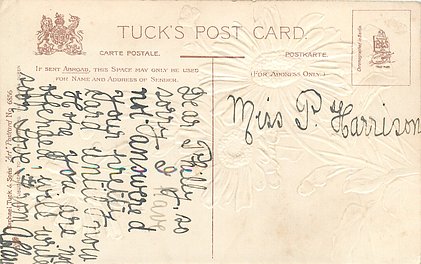 TUCK'S POST CARD.
CARTE POSTALE.
POSTKARTE.
IF SENT ABROAD, THIS SPACE MAY ONLY BE USED
FOR NAME AND ADDRESS OF SENDER.
(FOR ADDRESS ONLY.)
Miss P. Harrison
Dear Philly, so
sorry I have
not answered
your pretty
card until now
Hope you are not
offended, will write
soon love from
Raphael Tuck & Sons' "Art" Postcard No 6856